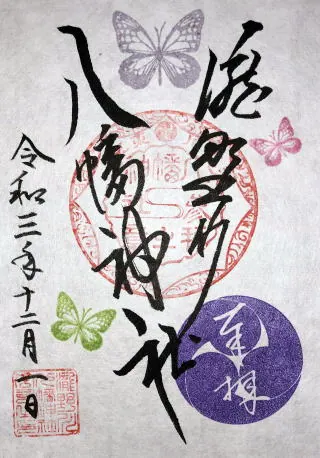 奉拝
瀧野川
八幡神社
令和三年十二月一日